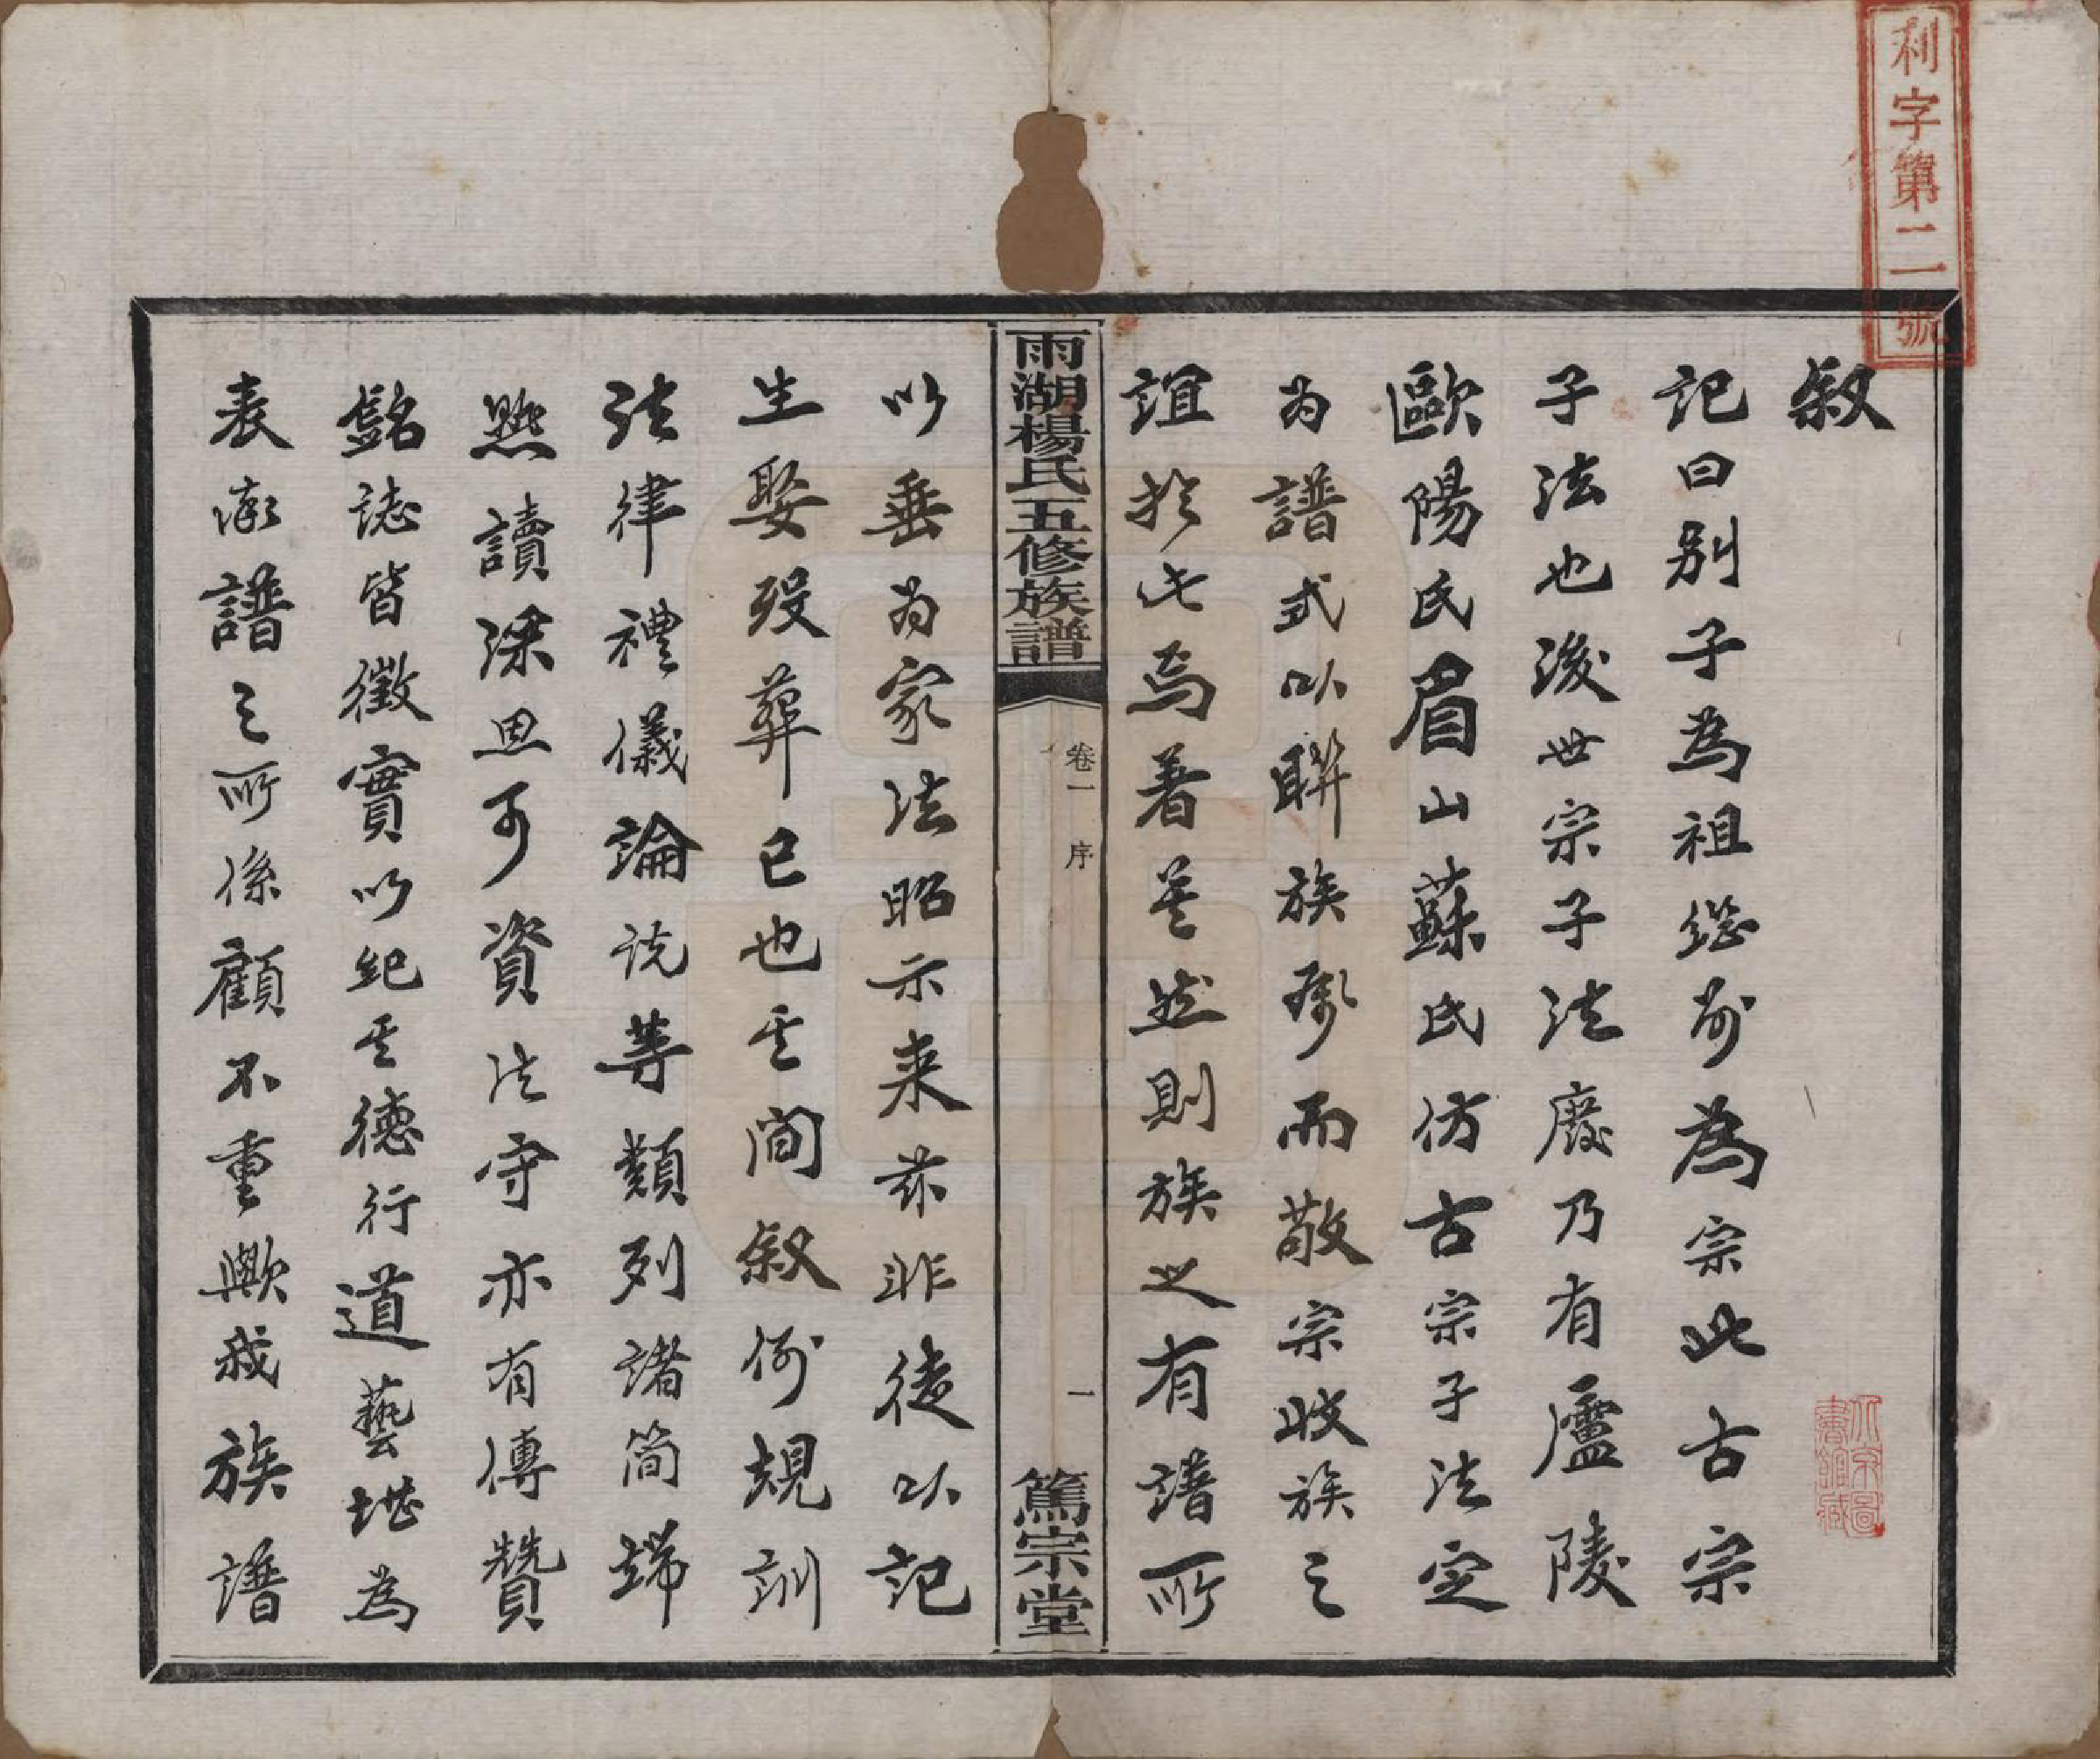 利字第二號
敘
記曰別子為祖繼別為宗此古宗
子法也後世宗子法廢乃有廬陵
歐陽氏眉山蘇氏仿古宗子法定
為譜式以聯族衆而敬宗收族之
誼於此焉著矣然則族之有譜所
雨湖楊氏五修族譜
卷一 序
一
篤宗堂
以垂為家法昭示来茲非徒以記
生娶歿葬已也其間敘例規訓
法律禮儀論說等類列諸簡端
熟讀深思可資法守亦有傳贊
銘誌皆徵實以紀其德行道藝堪為
表率譜之所係顧不重歟我族譜